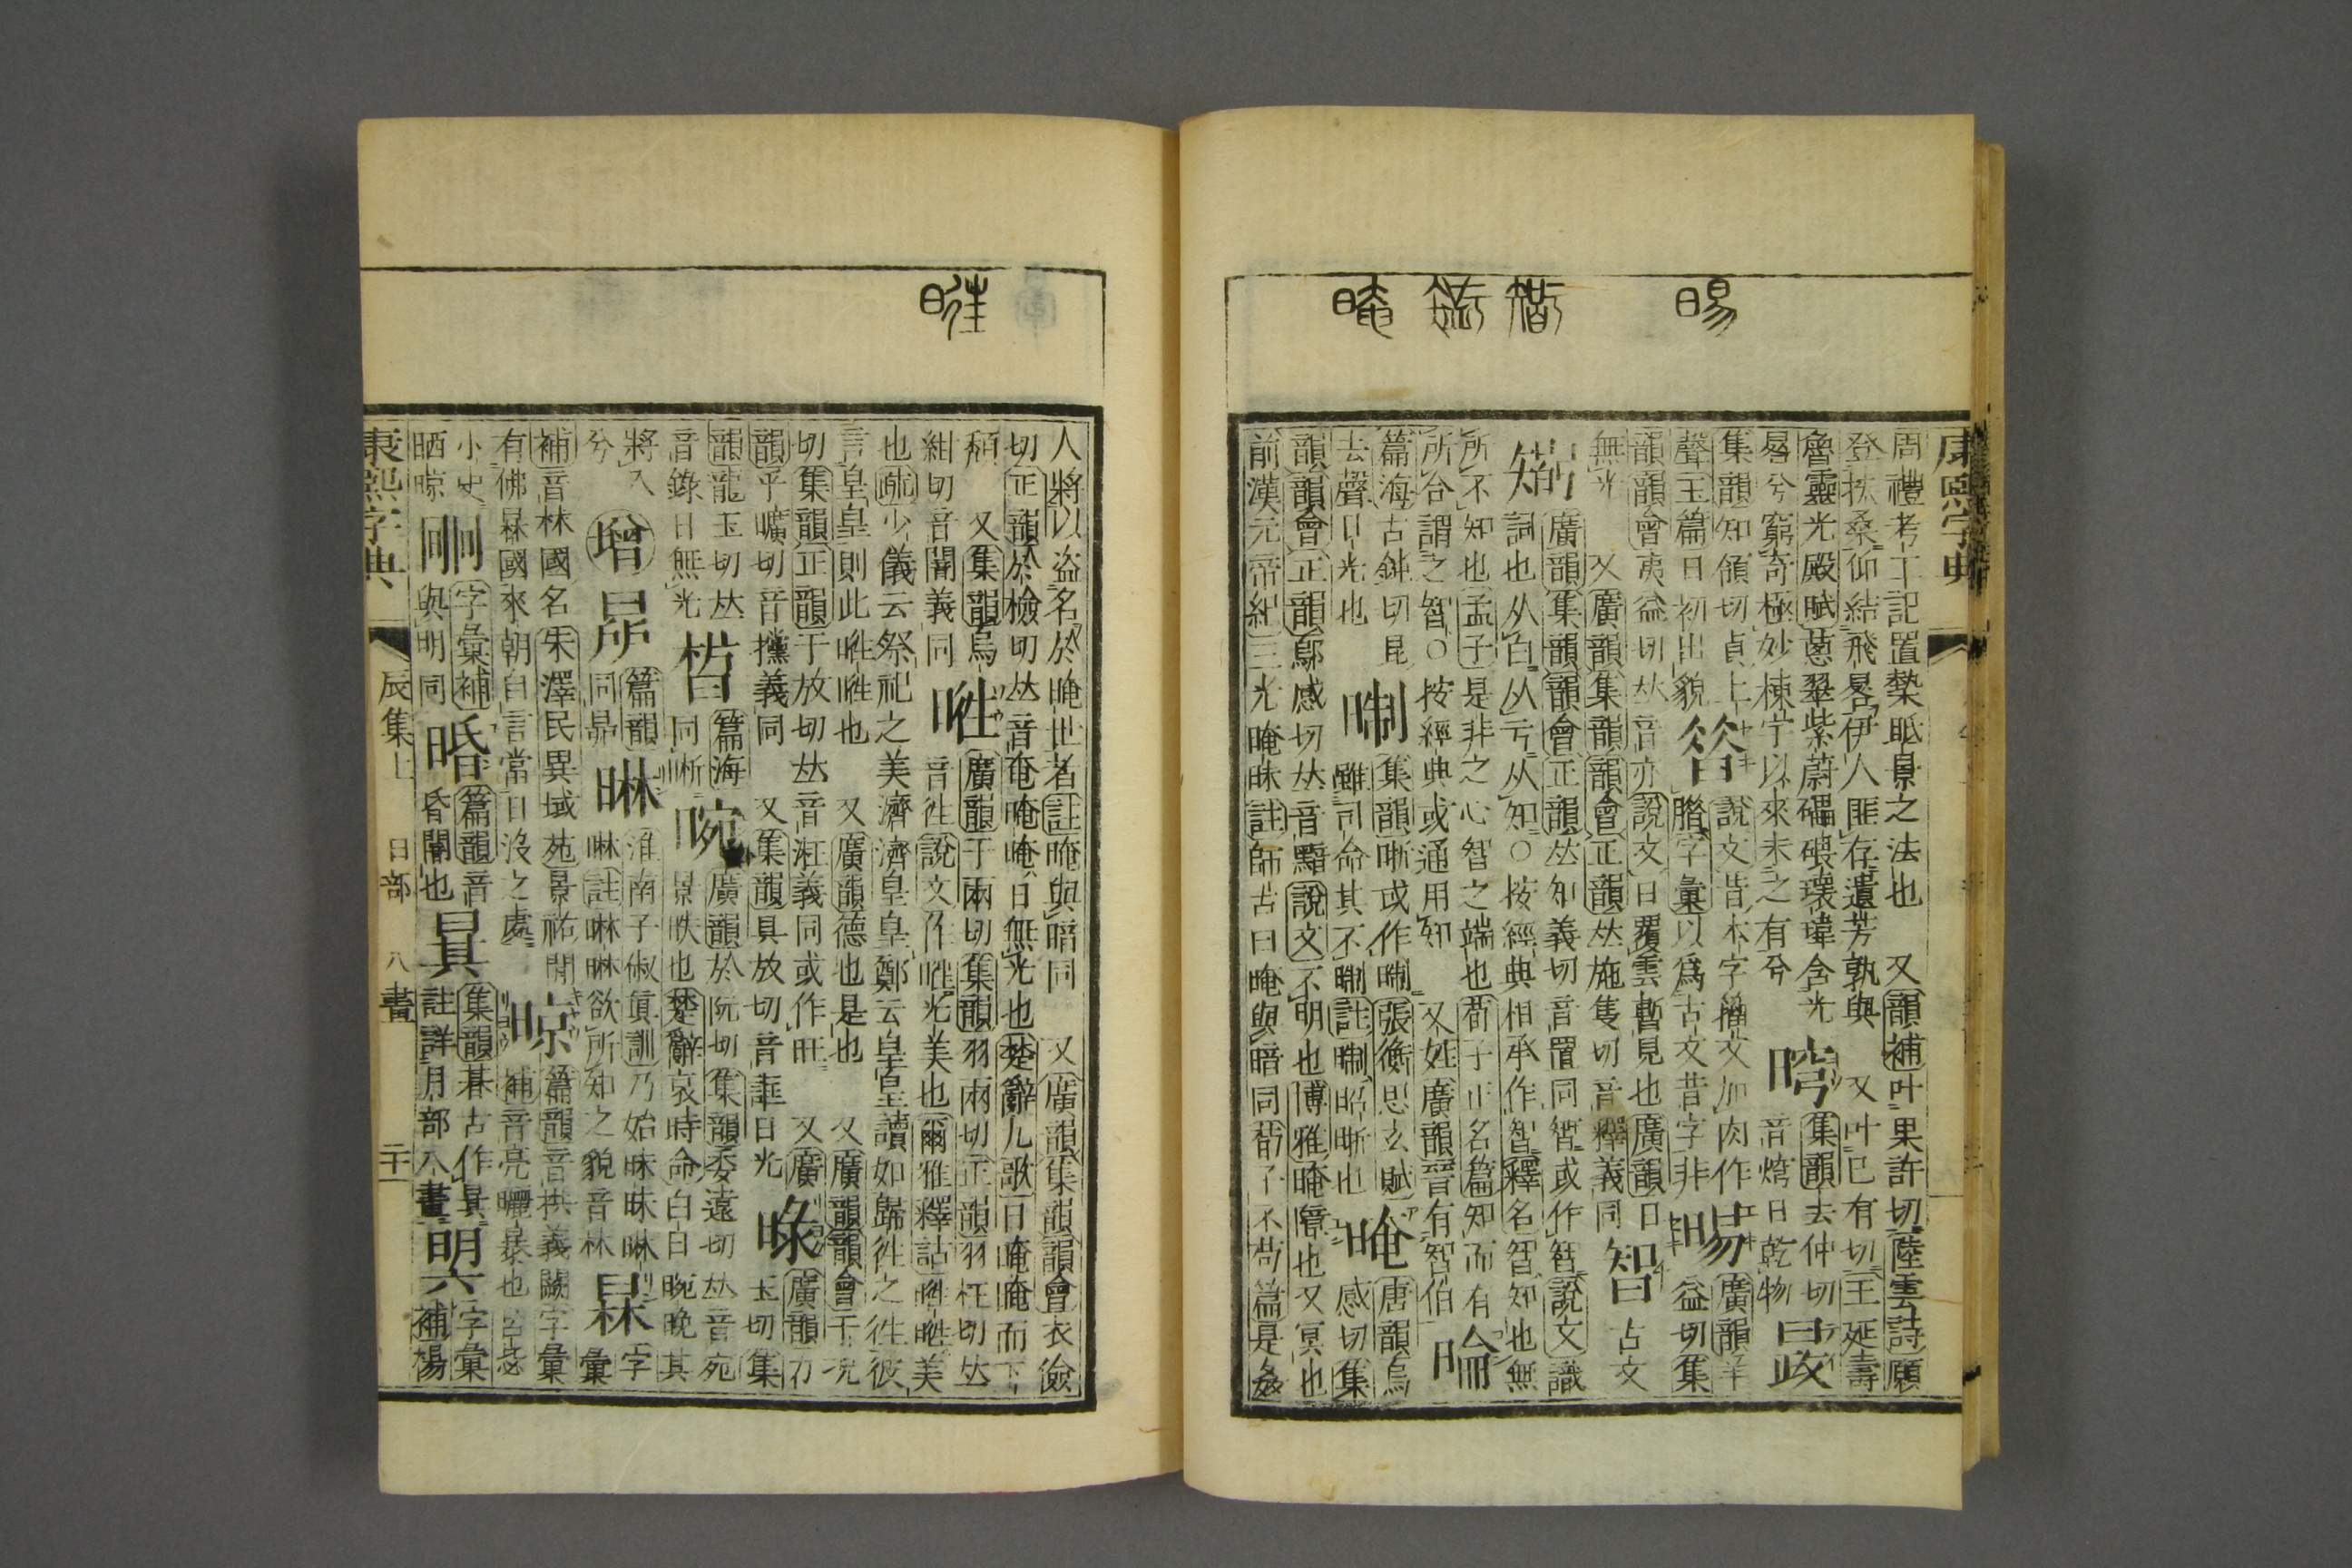 晹 智 晻
康熙字典
周禮考工記置槷眡景之法也 又韻補叶果許切陸雲詩願
登扶桑仰結飛晷伊人匪存遺芳孰與 又叶巳有切王延壽
魯靈光殿賦蔥翠紫蔚礧碨瓌瑋含光
晷兮窮奇極妙棟宇以來未之有兮
集韻去仲切
音焪日乾物
晸
集韻知領切貞上
聲玉篇日初出貌
說文㫺本字籀文加肉作
腊字彙以爲古文昔字非
晹
廣韻羊
益切集
韻韻會夷益切𠀤音亦說文日覆雲暫見也廣韻日
無光 又廣韻集韻韻會正韻𠀤施隻切音釋義同
智
古文
𥏼
廣韻集韻韻會正韻𠀤知義切音置同𣉻或作智說文識
詞也从白从亏从知○按經典相承作智釋名智知也無
所不知也孟子是非之心智之端也荀子正名篇知而有
所合謂之智○按經典或通用知 又姓廣韻晉有智伯
篇海古鈍切昆
去聲日光也
集韻晣或作 張衡思玄賦
雖司命其不 註 昭晣也
晻
唐韻烏
感切集
韻韻會正韻鄔感切𠀤音黯說文不明也博雅晻障也又冥也
前漢元帝紀三光晻昧註師古曰晻與暗同荀子不苟篇是姦
人將以盜名於晻世者註晻與暗同 又廣韻集韻韻會衣儉
切正韻於檢切𠀤音奄晻晻日無光也楚辭九歌日晻晻而下
頹 又集韻烏
紺切音闇義同
暀
廣韻于兩切集韻羽兩切正韻羽枉切𠀤
音徃說文作暀光美也爾雅釋詁暀暀美
也疏少儀云祭祀之美濟濟皇皇鄭云皇皇讀如歸徃之徃彼
言皇皇則此暀暀也 又廣韻德也是也 又廣韻韻會于況
切集韻正韻于放切𠀤音迋義同或作旺 又廣
韻乎曠切音攩義同 又集韻具放切音誑日光
廣韻力
玉切集
韻龍玉切𠀤
音錄日無光
晳
篇海
同晰
晼
廣韻於阮切集韻委遠切𠀤音宛
景昳也楚辭哀時命白日晼晚其
將入
兮
增
篇韻
同昴
晽
淮南子俶眞訓乃始昧昧晽
晽註晽晽欲所知之貌音林
㫩
字
彙
補音林國名朱澤民異域苑景祐閒
有佛㫩國來朝自言常日沒之處
晾
篇韻音烘義闕字彙
補音亮曬暴也呂毖
小史
晒晾
字彙補
與明同
㫯
篇韻音
昏闇也
集韻朞古作
註詳月部八畫
字彙
補楊
康熙字典
辰集上
日部
八畫
二十一